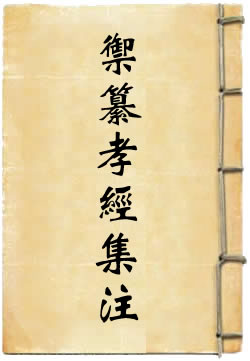 禦纂孝經集注